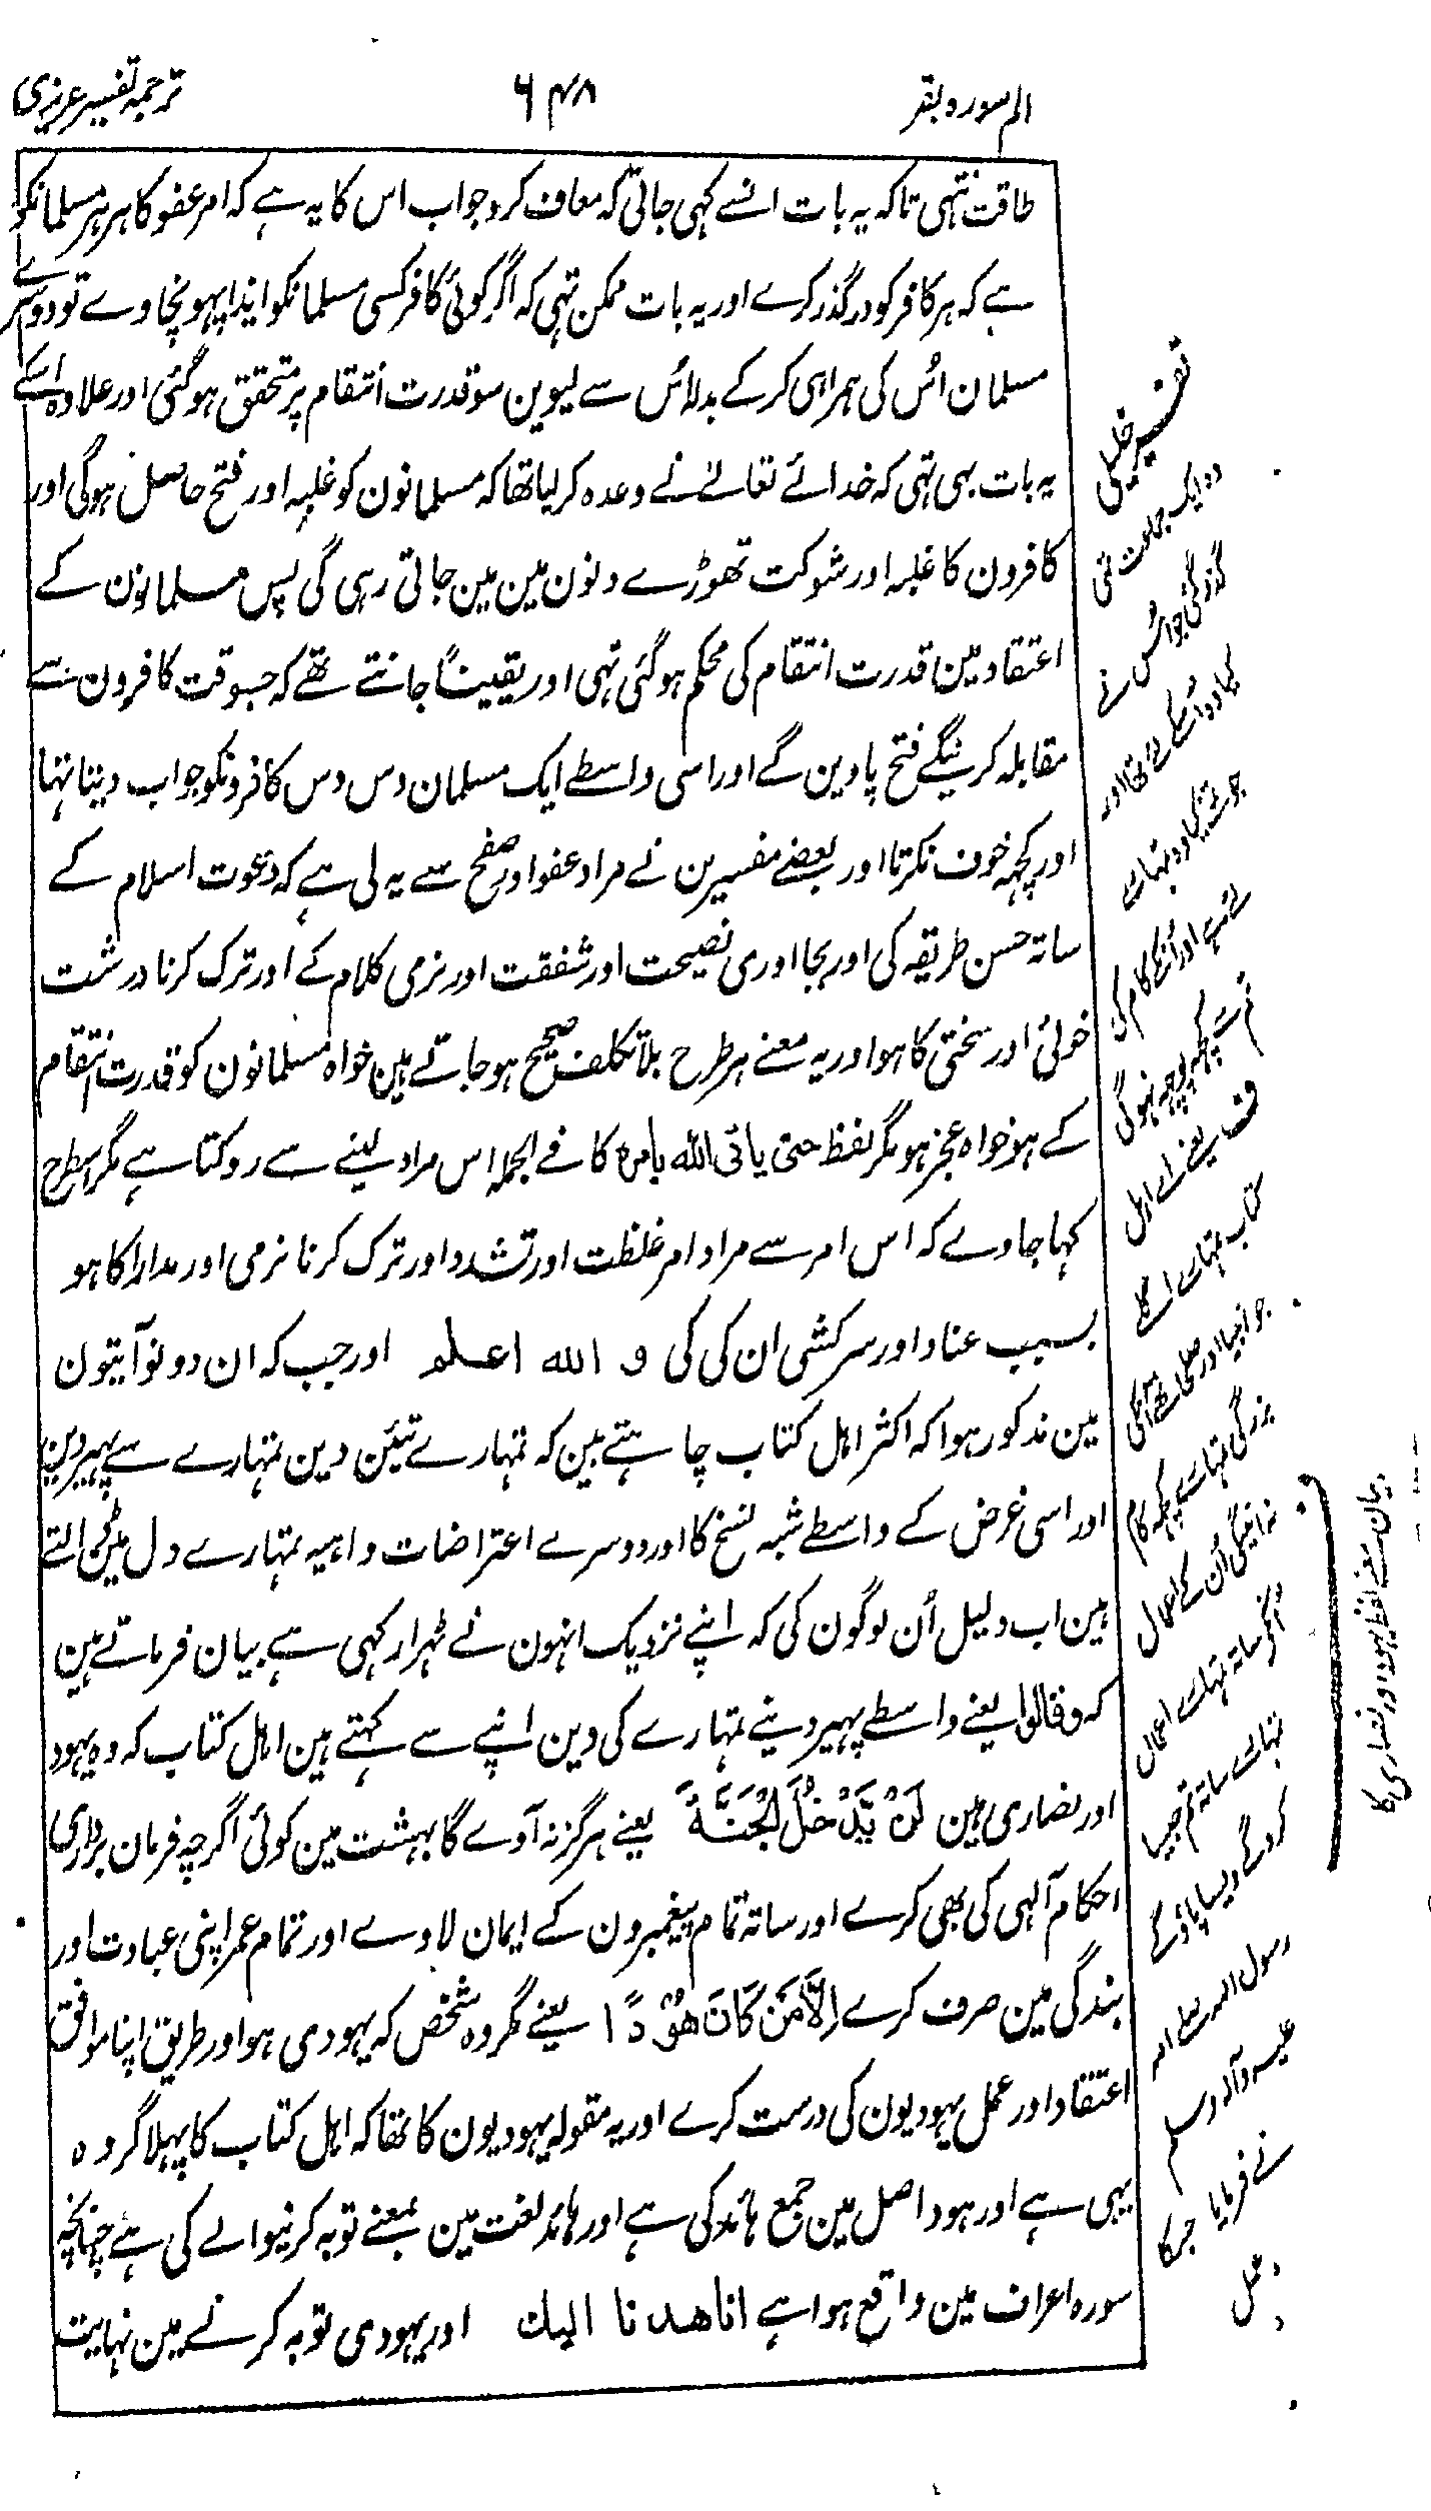 الم سورہ بقر
۶۴۸
ترجمہ تفسیر عزیزی
طاقت نتہی تاکہ یہ بات انسے کہی جاتی کہ معاف کرو جواب اس کا یہ ہے کہ امر عفو کا ہر ہر مسلمانکو
ہے کہ ہر کافر کو درگذر کرے اور یہ بات ممکن تہی کہ اگر کوئی کافر کسی مسلمانکو ایذا پہونچاوے تو دوسرے
مسلمان اُس کی ہمراہی کر کے بدلا اُس سے لیوین سو قدرت انتقام پر متحقق ہو گئی اور علاوہ اسکے
یہ بات بہی تہی کہ خدائے تعالےٰ نے وعدہ کر لیا تھا کہ مسلمانون کو غلبہ اور فتح حاصل ہوگی اور
کافرون کا غلبہ اور شوکت تھوڑے دنون مین مین جاتی رہی گی پس مسلمانون کے
اعتقاد مین قدرت انتقام کی محکم ہو گئی تہی اور یقیناً جانتے تھے کہ جسوقت کافرون سے
مقابلہ کرینگے فتح پاوین گے اور اسی واسطے ایک مسلمان دس دس کافرونکو جواب دیتا تہا
اور کچہہ خوف نکرتا اور بعضے مفسرین نے مراد عفو اور صفح سے یہ لی ہے کہ دعوت اسلام کے
ساتہ حسن طریقہ کی اور بجا اوری نصیحت اور شفقت اور نرمی کلام کے اور ترک کرنا درشت
خوئی اور سختی کا ہو اور یہ معنے ہر طرح بلا تکلف صحیح ہو جاتے ہین خواہ مسلمانون کو قدرت انتقام
کے ہو خواہ عجز ہو مگر لفظ حتی یاتی الله بامره کا فے الجملہ اس مراد لینے سے روکتا ہے مگر اسطرح
کہا جاوے کہ اس امر سے مراد امر غلظت اور تشدد اور ترک کرنا نرمی اور مدارا کا ہو
بسبب عناد اور سرکشی ان کی کی و الله اعلم اور جب کہ ان دونو آیتون
مین مذکور ہوا کہ اکثر اہل کتاب چاہتے ہین کہ تمہارے تئین دین تمہارے سے پہیر دین
اور اسی غرض کے واسطے شبہ نسخ کا اور دوسرے اعتراضات واہیہ تمہارے دل مین ڈالتے
ہین اب دلیل اُن لوگون کی کہ اپنے نزدیک انہون نے ٹہرار کہی ہے بیان فرماتے ہین
کہ وقالوا یعنے واسطے پہیر دینے تمہارے کی دین اپنے سے کہتے ہین اہل کتاب کہ وہ یہود
اور نصاری ہین لَنْ یَّدْخُلَ الْجَنَّةَ یعنے ہرگز نہ آوے گا بہشت مین کوئی اگرچہ فرمان برداری
احکام آلہی کی بھی کرے اور ساتہ تمام پیغمبرون کے ایمان لاوے اور تمام عمر اپنی عبادت اور
بندگی مین صرف کرے اِلَّا مَنْ كَانَ هُوْدًا یعنے مگر وہ شخص کہ یہودی ہو اور طریق اپنا موافق
اعتقاد اور عمل یہودیون کی درست کرے اور یہ مقولہ یہودیون کا تھا کہ اہل کتاب کا پہلا گروہ
یہی ہے اور ہود اصل مین جمع ہائد کی ہے اور ہائد لغت مین بمعنے توبہ کرنیوالے کی ہے چنانچہ
سورہ اعراف مین واقع ہوا ہے انا هدنا الیك اور یہودی توبہ کرنے مین نہایت
تفسیر خلیلی
وہ ایک جماعت تہی
گذر گئی جو اُس نے
کیا وہ اُسکے لئے تھا اور
جو تم کرو تمہارے
لئے ہے اور اُنکے کام کی
تم سے کچہہ پوچہہ نہوگی
ف یعنے اے اہل
کتاب تمہارے اگلے
جو انبیا اور صلحا تھے اُنکی
بزرگی تمہارے کچہہ کام
نہ آئیگی اُن کے اعمال
اُنکے ساتہ تمہارے اعمال
تمہارے ساتہ تم جیسا
کرو گے ویسا پاؤ گے
رسول اللہ صلے اللہ
علیہ وآلہ وسلم
نے فرمایا جسکا
عمل
بیان معنے لفظ یہود اور نصاری کا